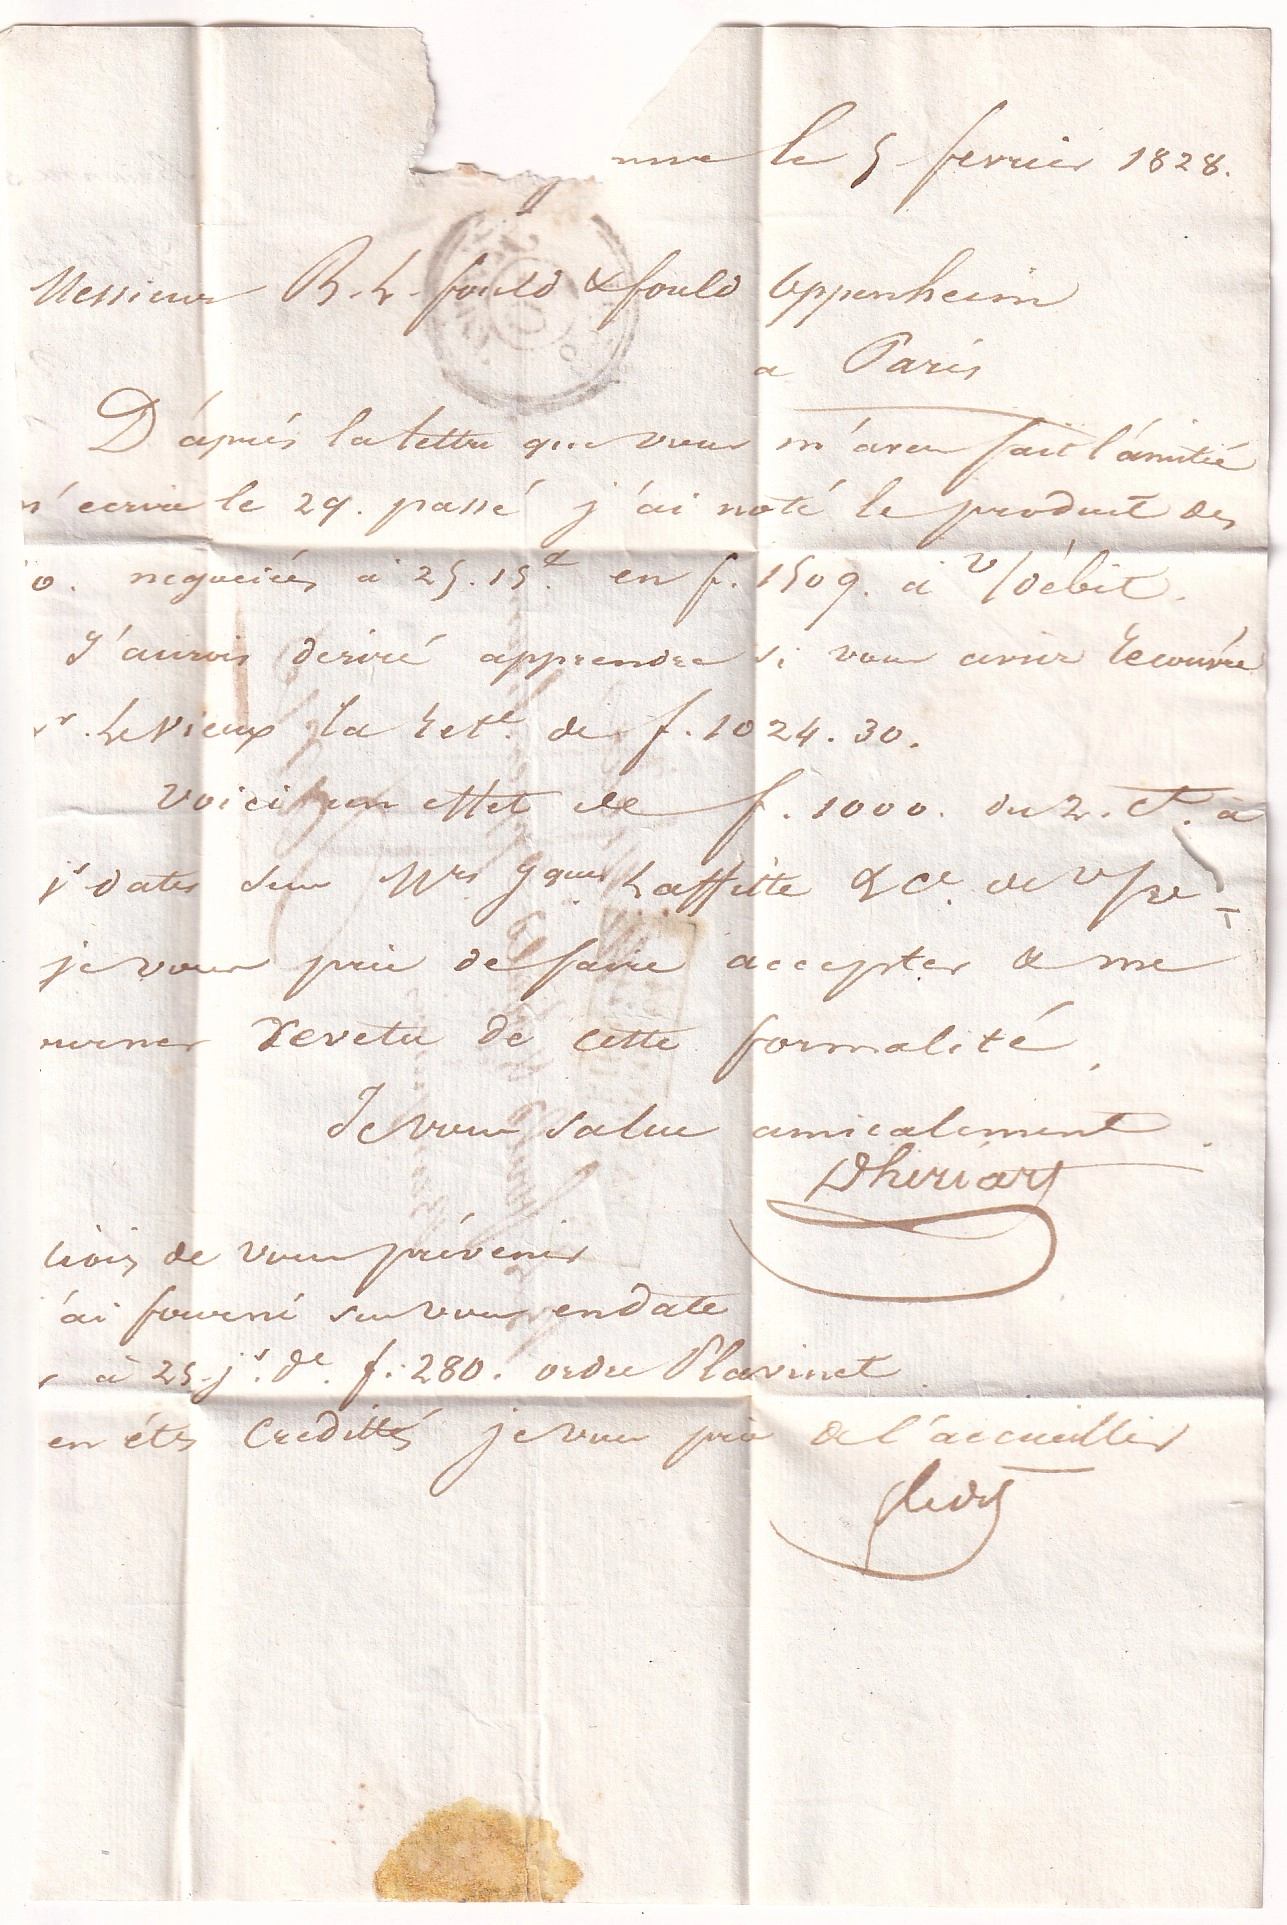 nne le 5 fevrier 1828.
Messieurs B. L. fould & fould Oppenheim
a Paris
D'áprés la lettre que vous m'avez fait l'ámitié
m'ecrire le 29. passé j'ai noté le produit des
0. negociées à 25.15 en f. 1509. à v/débit.
J'aurois desiré apprendre si vous aviez Recouvré
r. Levieux la Rete. de f. 1024.30.
Voici un effet de f. 1000. du 2. Ct. à
js dates sur Mrs Jques Laffitte & Ce. de v/
je vous prie de faire accepter & me
ourner Revetu de cette formalité.
Je vous salue amicalement
Dhiriart
de vous prévenir
'ai fourni sur vous en date
à 25 js. de. f. 280. ordre Plavinet
en étes Credittés je vous prie de l'áccueillir